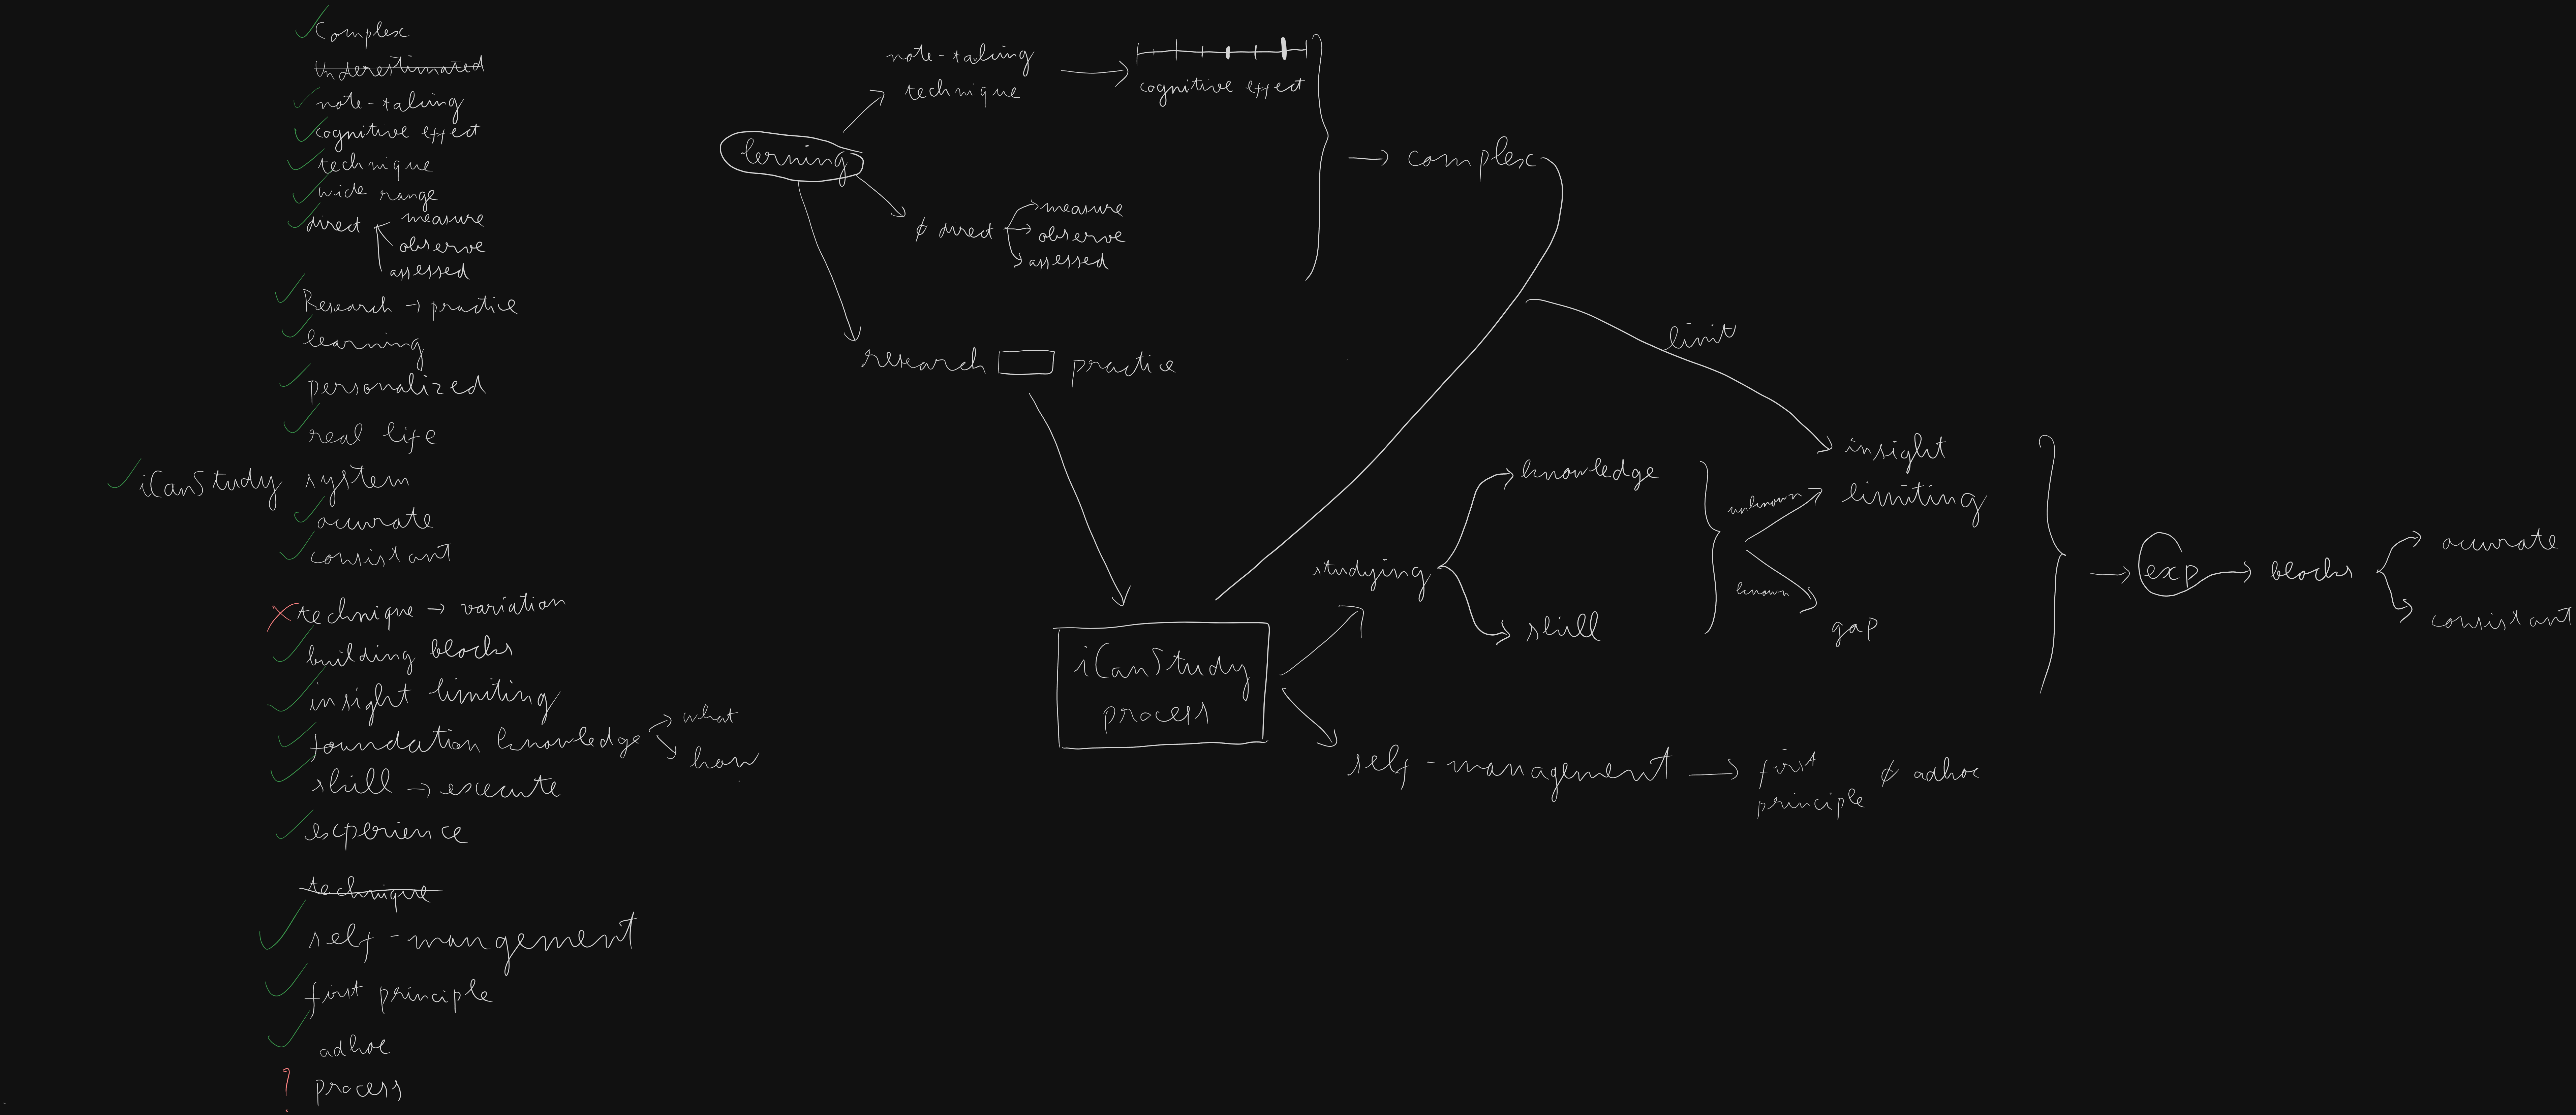 Complex
Underestimated
note-taking
cognitive effect
technique
wide range
direct
measure
observe
assessed
Research → practice
learning
personalized
real life
iCanStudy system
accurate
consistant
technique → variation
building blocks
insight limiting
foundation knowledge
what
how
skill → execute
experience
technique
self-mangement
first principle
adhoc
process
note-taking
technique
cognitive effect
lerning
direct
measure
observe
assessed
complex
research
practice
limit
insight
limiting
unknown
known
gap
knowledge
studying
skill
exp
blocks
accurate
consistant
iCanStudy
process
self-management
first
principle
adhoc